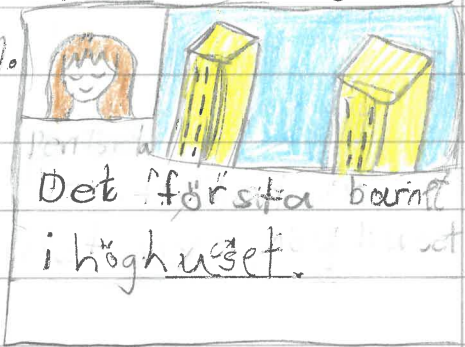 Det första barnet
i höghuset.